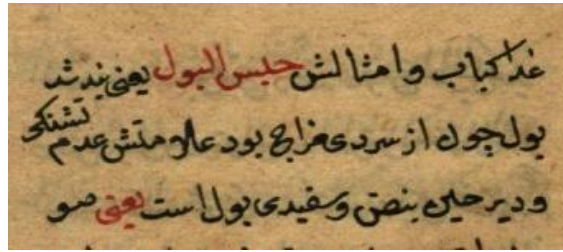 غذا کباب و امثالش حبس البول یعنی بند شد
بول چون از سردی مزاج بود علامتش عدم تشنکی
و دیر حین نبض و سفیدی بول است یعنی صو